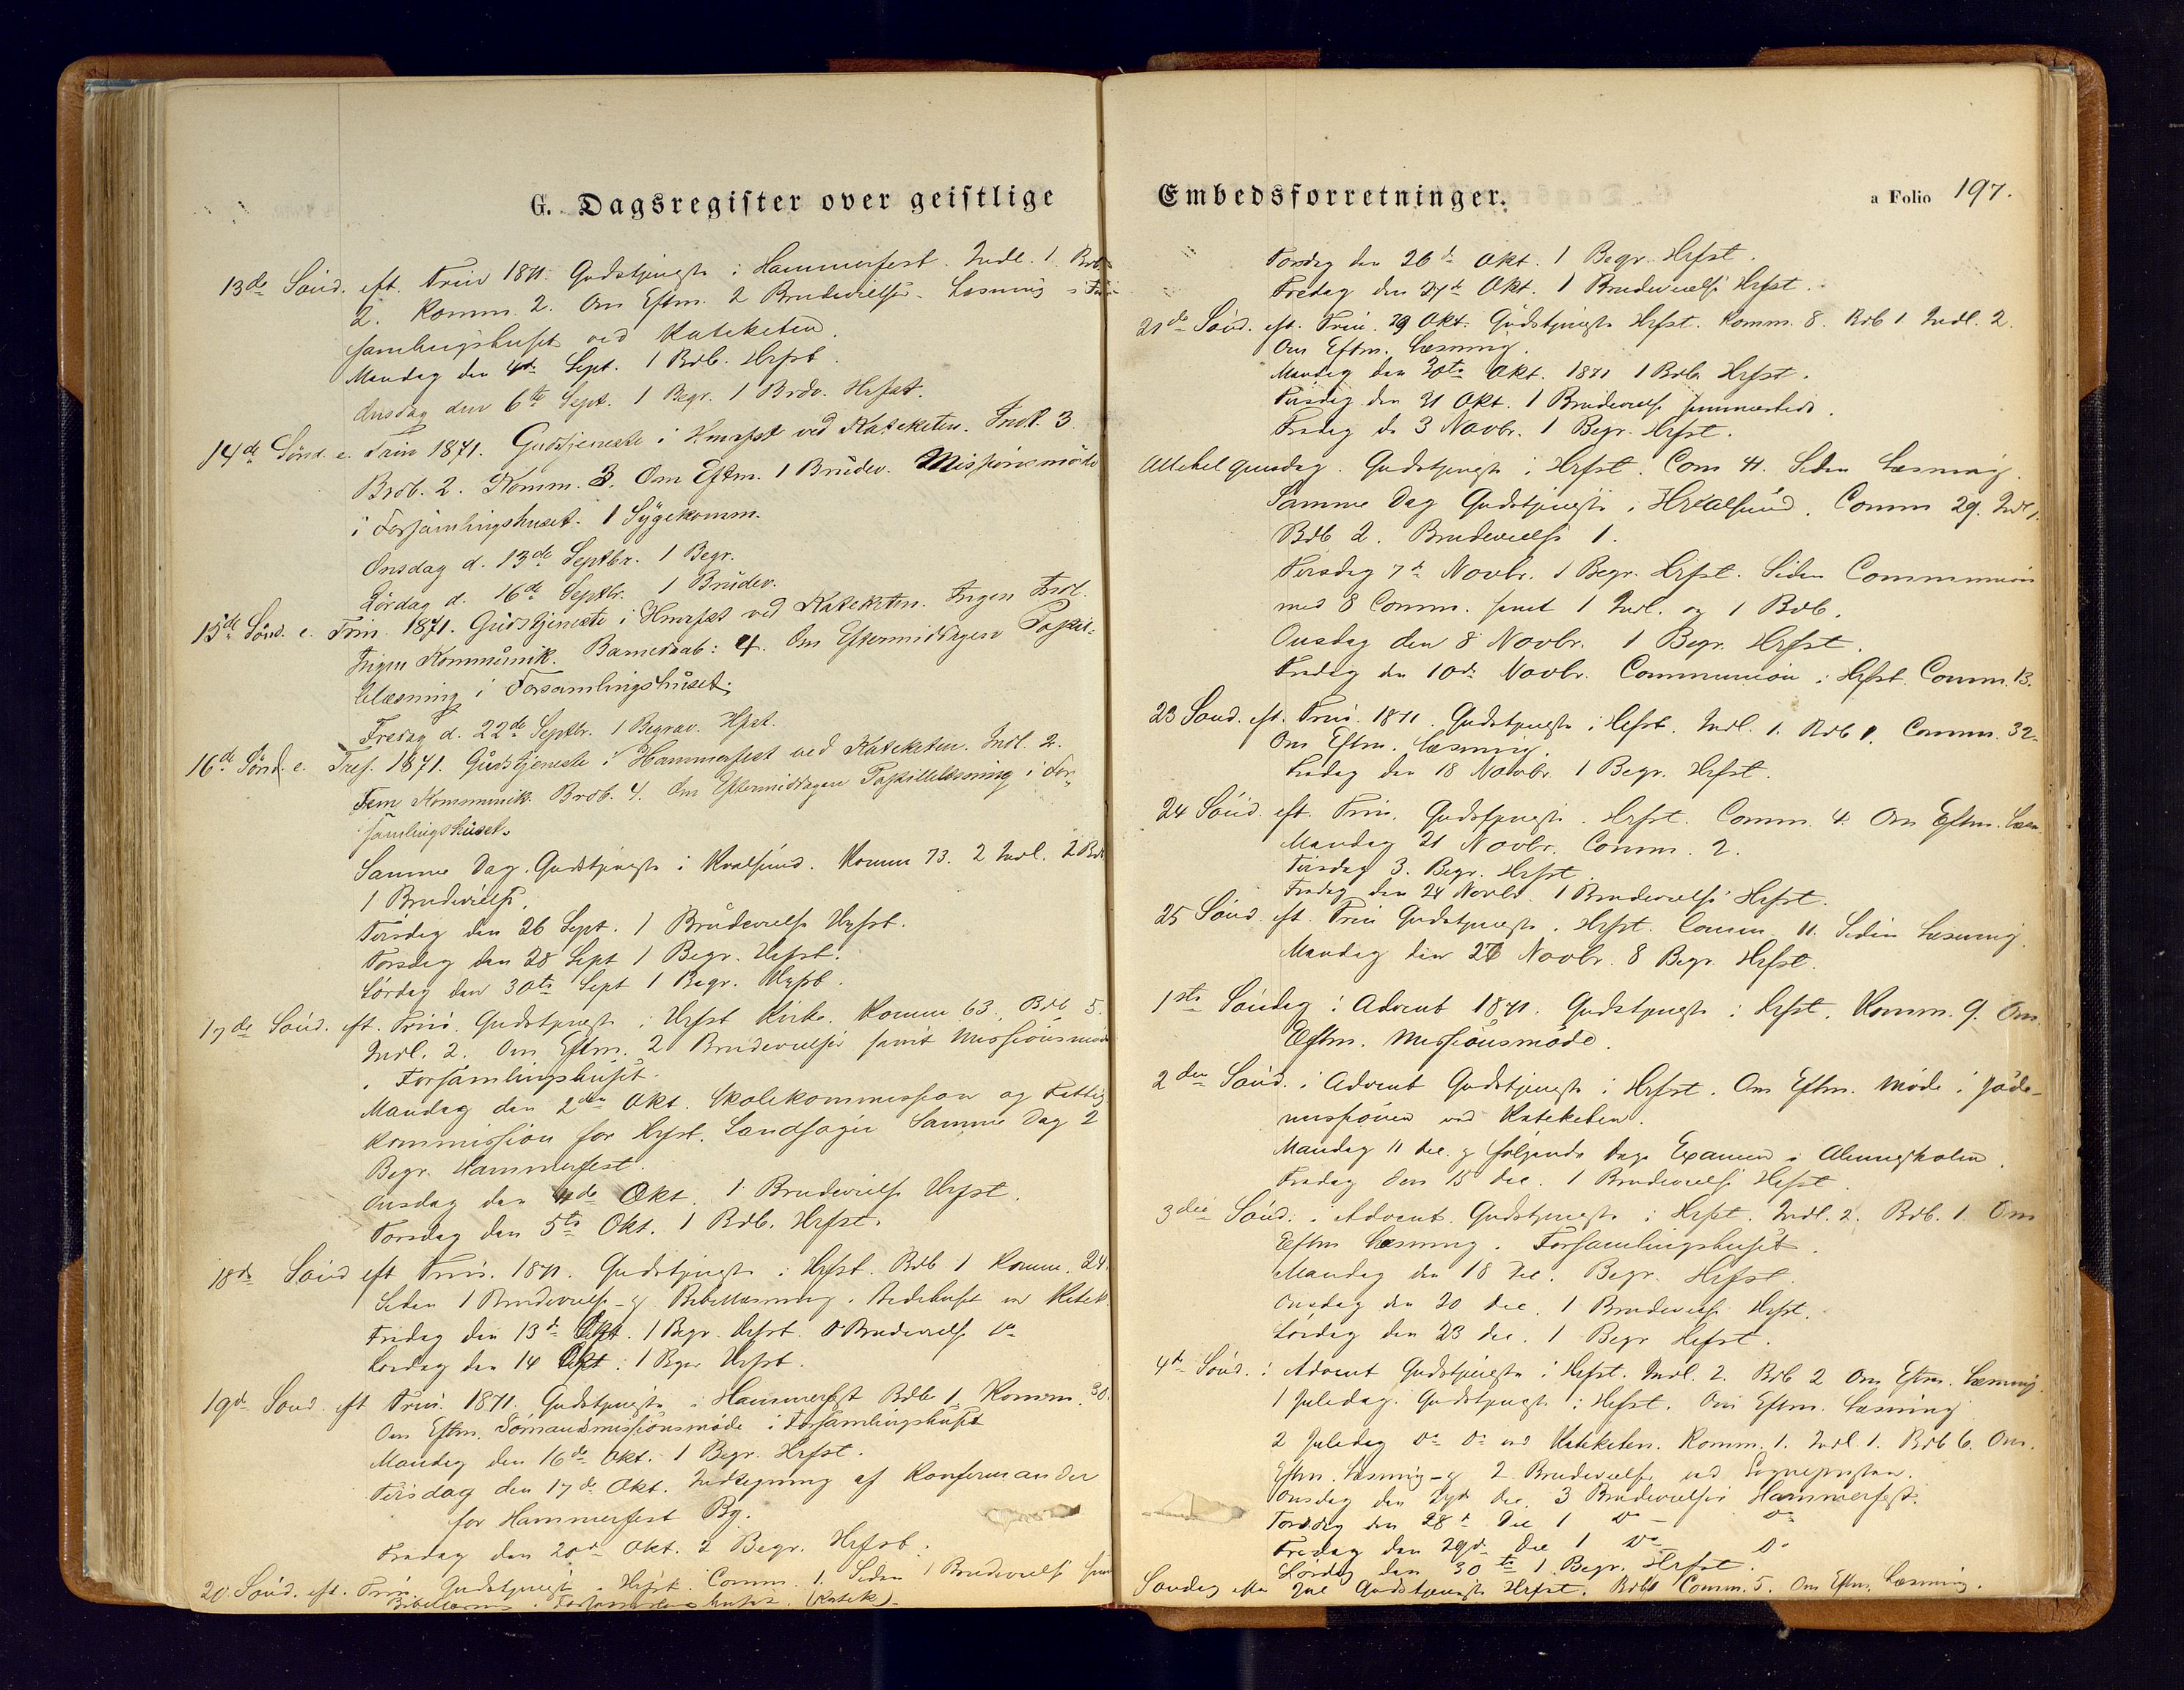 G. Dagsregister over geistlige
13de Sönd. eft. Trin 1871. Gudstjeneste i Hammerfest. Indl. 1. Brb
2. Komm. 2. Om Eftm. 2 Brudevielser. Læsning i For-
samlingshuset ved Kateketen.
Mandag den 4de Sept. 1 Brb. Hrfst.
Onsdag den 6te Sept. 1 Begr. 1 Brdv. Hrfst.
14de Sönd. e. Trin 1871. Gudstjeneste i Hmrfst ved Kateketen. Indl. 3.
Brdb. 2. Komm. 3. Om Eftm. 1 Brudev. Missionsmöde
i Forsamlingshuset. 1 Sygekomm.
Onsdag d. 13de Septbr. 1 Begr.
Lördag d. 16de Septbr. 1 Brudev.
15de Sönd. e. Trin. 1871. Gudstjeneste i Hmrfst ved Kateketen. Ingen Indl.
Ingen Kommunik. Barnedaab: 4. Om Eftermiddagen Postil-
lelæsning i Forsamlingshuset.
Fredag d. 22de Septbr. 1 Begrav. Hfst.
16de Sönd. e. Tref. 1871. Gudstjeneste i Hammerfest ved Kateketen. Indl. 2.
Fem Kommunik. Brdb. 4. Om Eftermiddagen Postillelæsning i For-
samlingshuset.
Samme Dag. Gudstjeneste i Kvalsund. Komm 73. 2 Indl. 2 Brb
1 Brudevielse.
Tirsdag den 26 Sept. 1 Brudevielse Hrfst.
Torsdag den 28 Sept 1 Begr. Hrfst.
Lördag den 30te Sept 1 Begr. Hrfst.
17de Sönd. eft. Trin. Gudstjeneste i Hrfst Kirke. Komm 63. Brb 5.
Indl. 2. Om Eftm. 2 Brudevielser samt Missionsmöde
i Forsamlingshuset.
Mandag den 2den Okt. Skolekommission og Fattig
kommission for Hrfst. Landsogn Samme Dag 2
Begr. Hammerfest.
Onsdag den 4de Okt. 1 Brudevielse Hrfst.
Torsdag den 5te Okt. 1 Bdb. Hrfst.
18de Sönd eft Trin. 1871. Gudstjeneste i Hrfst. Bdb 1 Komm. 24.
Siden 1 Brudevielse og Bibellæsning i Bedehuset ved Katek.
Fredag den 13de Okt. 1 Begr. Hrfst. Brudevielse Do
Lördag den 14 Okt. 1 Begr Hrfst.
19de Sönd. eft Trin. 1871. Gudstjeneste i Hammerfest Bdb 1. Komm. 30.
Om Eftm. Sömandsmissionsmöde i Forsamlingshuset
Mandag den 16de Okt. 1 Begr. Hrfst.
Tirsdag den 17de Okt. Indtegning af Konfermander
for Hammerfest By.
Fredag den 20de Okt. 2 Begr. Hrfst.
20 Sönd. eft. Trin. Gudstjeneste i Hrfst. Comm. 1. Siden 1 Brudevielse samt
Bibellæsning i Forsamlingshuset. (Katek).
Embedsforretninger.
a Folio 197.
Torsdag den 26de Okt. 1 Begr. Hrfst.
Fredag den 27de Okt. 1 Brudevielse Hrfst.
21de Sönd. eft. Trin. 29 Okt. Gudstjeneste Hrfst. Komm. 8. Bdb 1. Indl. 2.
Om Eftm. Læsning.
Mandag den 30te Okt. 1871 1 Bdb Hrfst.
Tirsdag den 31 Okt. 1 Brudevielse sammesteds.
Fredag d. 3 Novbr. 1 Begr. Hrfst.
Allehelgensdag. Gudstjeneste i Hrfst. Com 41. Siden Læsning.
Samme Dag Gudstjeneste i Hvalsund. Comm 29. Indl 1.
Bdb 2. Brudevielse 1.
Tirsdag 7de Novbr. 1 Begr. Hrfst. Siden Communion
med 8 Comm. samt 1 Indl. og 1 Bdb.
Onsdag den 8 Novbr. 1 Begr. Hrfst.
Fredag den 10de Novbr. Communion i Hrfst. Comm. 13.
23 Sönd. eft. Trin. 1871. Gudstjeneste i Hrfst. Indl. 1. Bdb 1. Comm. 32.
Om Eftm. Læsning.
Lördag den 18 Novbr. 1 Begr. Hrfst.
24 Sönd. eft. Trin. Gudstjeneste. Hrfst. Comm. 4. Om Eftm. Læsn.
Mandag 21 Novbr. Comm. 2.
Tirsdag 3. Begr. Hrfst.
Fredag den 24 Novbr. 1 Brudevielse Hrfst.
25 Sönd. eft. Trin Gudstjeneste i Hrfst. Comm. 11. Siden Læsning.
Mandag den 27 Novbr. 8 Begr. Hrfst.
1ste Söndag i Advent 1871. Gudstjeneste i Hrfst. Komm. 9. Om
Eftm. Missionsmöde.
2den Sönd. i Advent Gudstjeneste i Hrfst. Om Eftm. Möde i Jöde-
missionen ved Kateketen.
Mandag 11 Dec. og følgende Dage Examen i Almueskolen.
Fredag den 15 Dec. 1 Brudevielse Hrfst.
3die Sönd. i Advent. Gudstjeneste i Hrfst. Indl. 2. Bdb. 1. Om
Eftm Læsning. Forsamlingshuset.
Mandag den 18 Dec. Begr. Hrfst.
Onsdag den 20 Dec. 1 Brudevielse Hrfst.
Lördag den 23 Dec. 1 Begr Hrfst.
4de Sönd. i Advent Gudstjeneste i Hrfst. Indl. 2. Bdb 2 Om Eftm. Læsning.
1 Juledag. Gudstjeneste i Hrfst. Om Eftm. Læsning
2 Juledag Do Do ved Kateketen. Komm. 1. Indl. 1. Bdb 6. Om.
Eftm. Læsning og 2 Brudevielser ved Sognepresten.
Onsdag den 27de Dec. 3 Brudevielser Hammerfest.
Torsdag den 28de Dec 1 Do Do
Fredag den 29de Dec 1 Do Do
Lördag den 30te 1 Begr. Hrfst.
Sondag efter Jul Gudstjeneste Hrfst. Bdb Comm. 5. Om Eftm. Læsning.